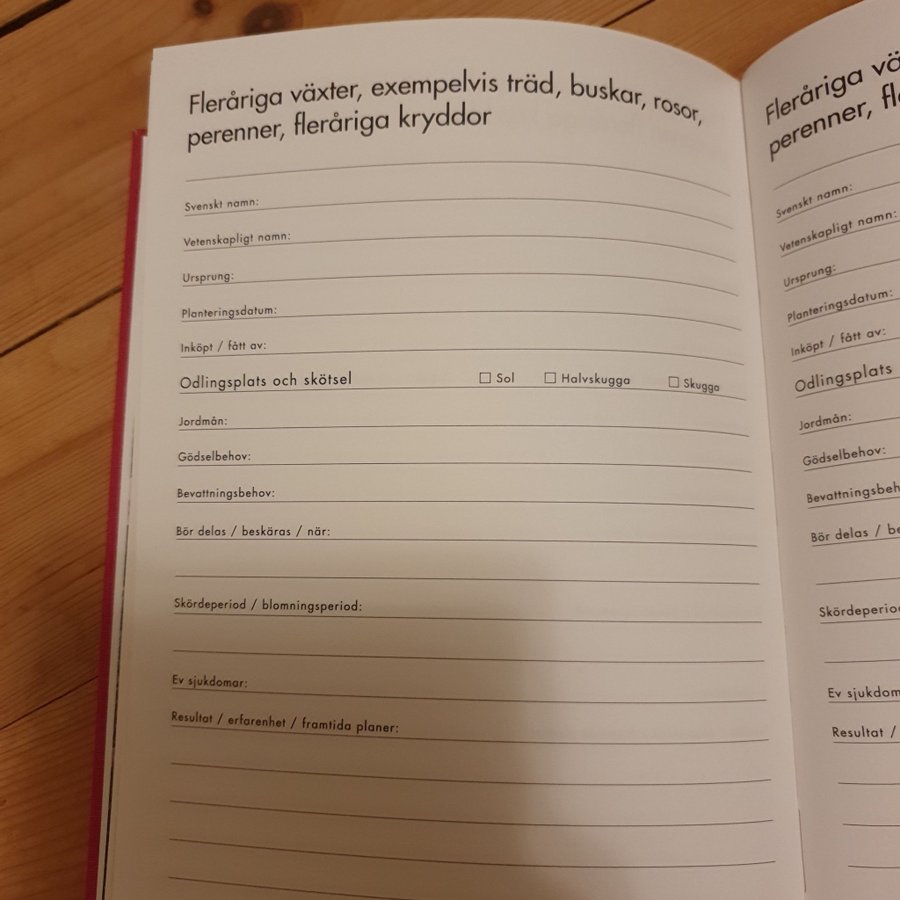 Fleråriga växter, exempelvis träd, buskar, rosor,
perenner, fleråriga kryddor
Svenskt namn:
Vetenskapligt namn:
Ursprung:
Planteringsdatum:
Inköpt / fått av:
Odlingsplats och skötsel ☐ Sol ☐ Halvskugga ☐ Skugga
Jordmån:
Gödselbehov:
Bevattningsbehov:
Bör delas / beskäras / när:
Skördeperiod / blomningsperiod:
Ev sjukdomar:
Resultat / erfarenhet / framtida planer:
Fleråriga vä
perenner, fl
Svenskt namn:
Vetenskapligt namn:
Ursprung:
Planteringsdatum:
Inköpt / fått av:
Odlingsplats
Jordmån:
Gödselbehov:
Bevattningsbeh
Bör delas / be
Skördeperio
Ev sjukdom
Resultat /